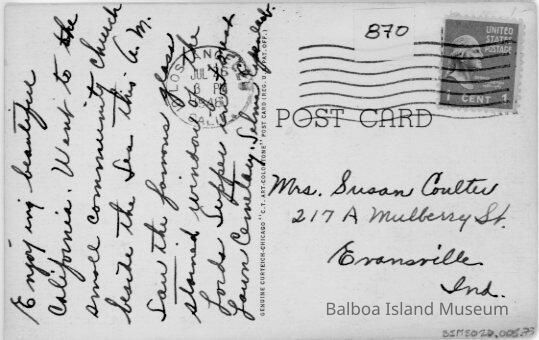 Enjoying beautiful
California. Went to the
small community church
beside the Sea this A.M.
Saw the famous glass
stained window of the
Lords Supper in Forest
Lawn Cemetary. Selma
870
LOS ANGELES
JUL
6 PM
CALIF.
UNITED
STATES
POSTAGE
1 CENT 1
POST CARD
GENUINE CURTEICH-CHICAGO "C.T. ART-COLORTONE" POST CARD (REG. U.S. PAT. OFF.)
Mrs. Susan Coulter
217 A Mulberry St.
Evansville
Ind.
Balboa Island Museum